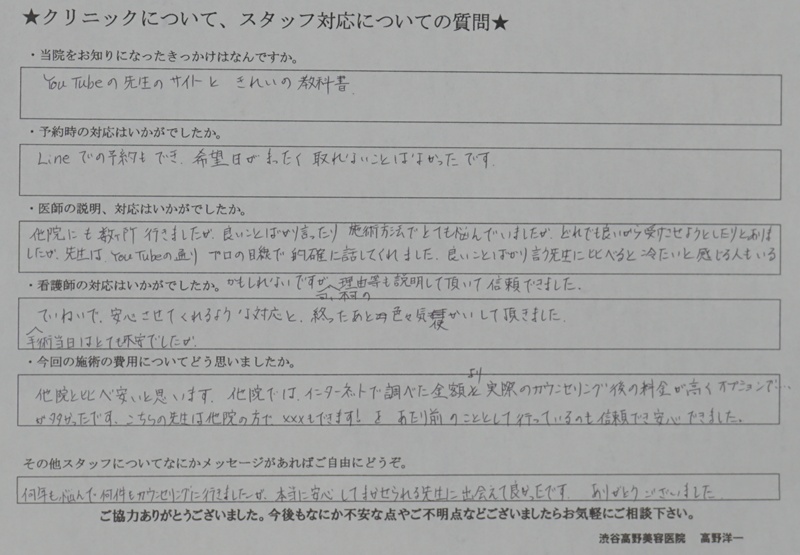 ★クリニックについて、スタッフ対応についての質問★
・当院をお知りになったきっかけはなんですか。
YouTubeの先生のサイトと きれいの教科書
・予約時の対応はいかがでしたか。
Lineでの予約もでき、希望日がまったく取れないことはなかったです。
・医師の説明、対応はいかがでしたか。
他院にも数ヶ所行きましたが、良いことばかり言ったり 施術方法でとても悩んでいましたが、どれでも良いから受けさせようとしたりとありま
したが、先生は、YouTubeの通り プロの目線で的確に話してくれました。良いことばかり言う先生に比べると冷たいと感じる人もいる
・看護師の対応はいかがでしたか。かもしれないですが、理由等も説明して頂いて信頼できました。
ていねいで、安心させてくれるような対応と、終ったあとも色々気遣いして頂きました。
手術当日はとても不安でしたが、
・今回の施術の費用についてどう思いましたか。
他院と比べ安いと思います。他院では、インターネットで調べた金額より実際のカウンセリング後の料金が高くオプションで…
が多かったです。こちらの先生は他院の方で xxxもできます! を あたり前のこととして行っているのも信頼でき安心できました。
その他スタッフについてなにかメッセージがあればご自由にどうぞ。
何年も悩んで何件もカウンセリングに行きましたが、本当に安心してまかせられる先生に出会えて良かったです。ありがとうございました
ご協力ありがとうございました。今後もなにか不安な点やご不明点などございましたらお気軽にご相談下さい。
渋谷高野美容医院 高野洋一